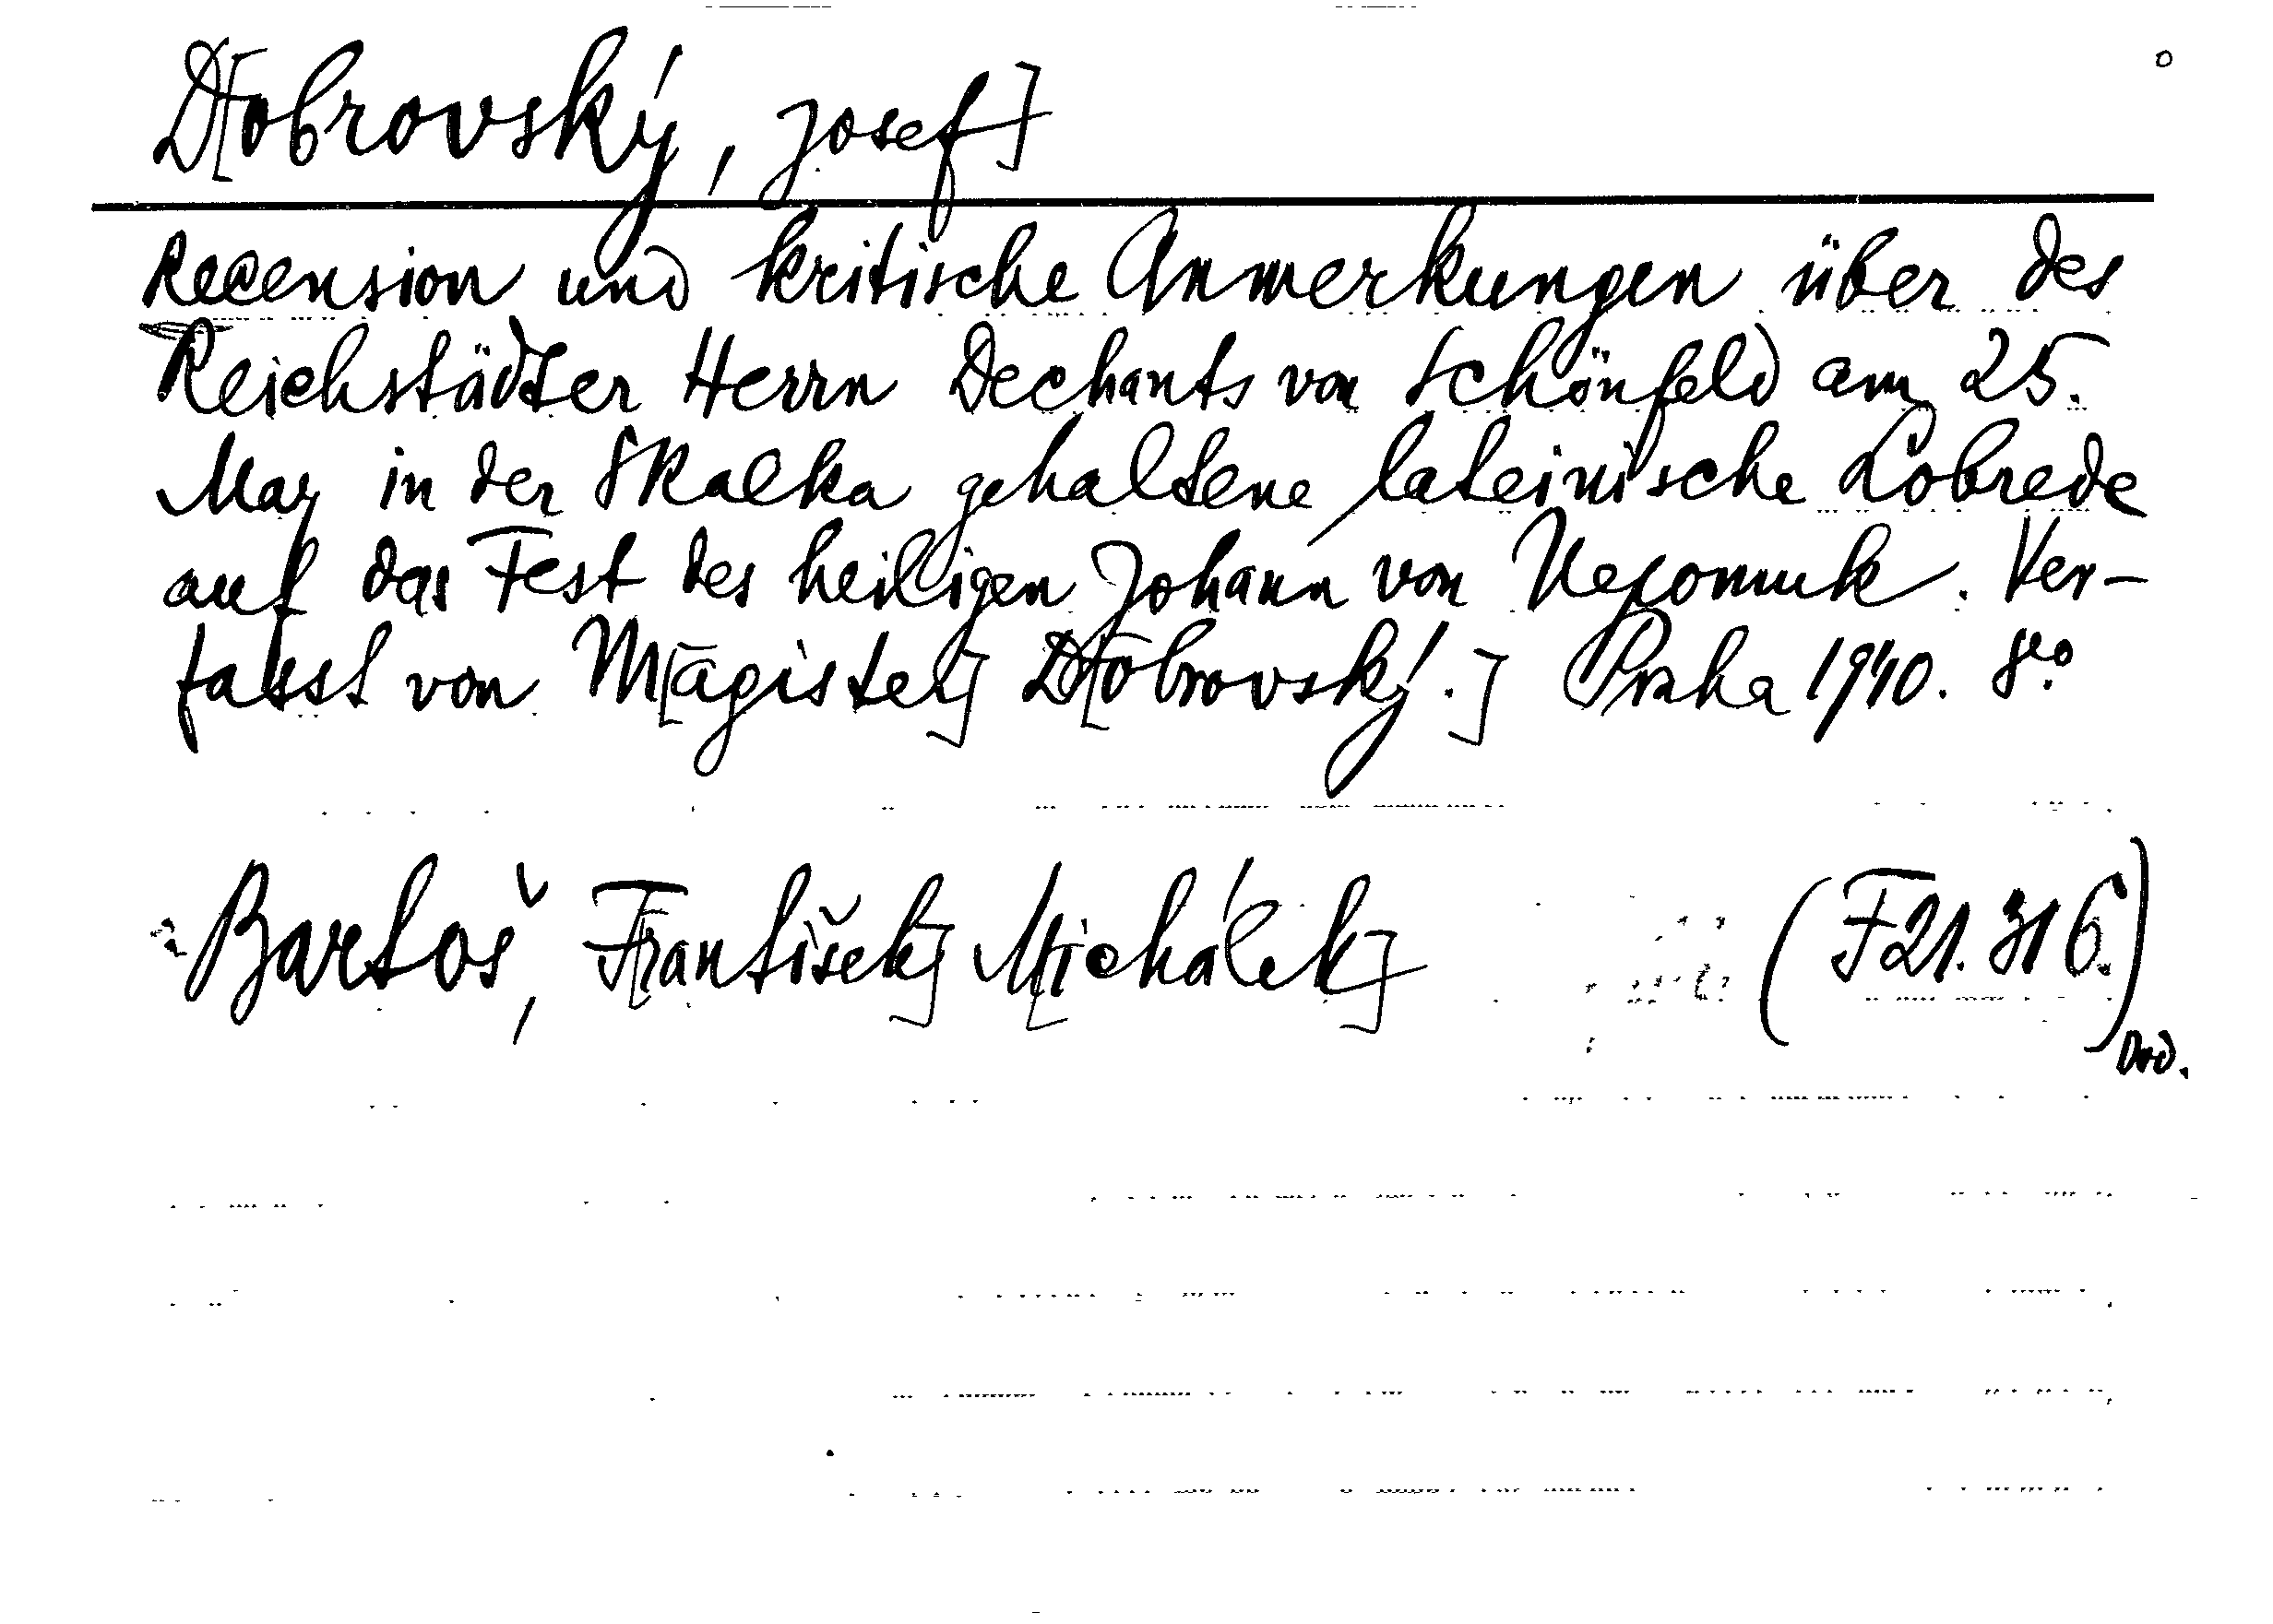 D[obrovský, Josef]
Recension und kritische Anmerkungen über des
Reichstädter Herrn Dechants von Schönfeld am 25.
May in der Skalka gehaltene lateinische Lobrede
auf das Fest des heiligen Johann von Nepomuk. Ver-
fasst von M[agister] D[obrovský.] Praha 1940. 8°.
Bartoš, F[rantišek] M[ichálek]
(F21.316.)
Dod.